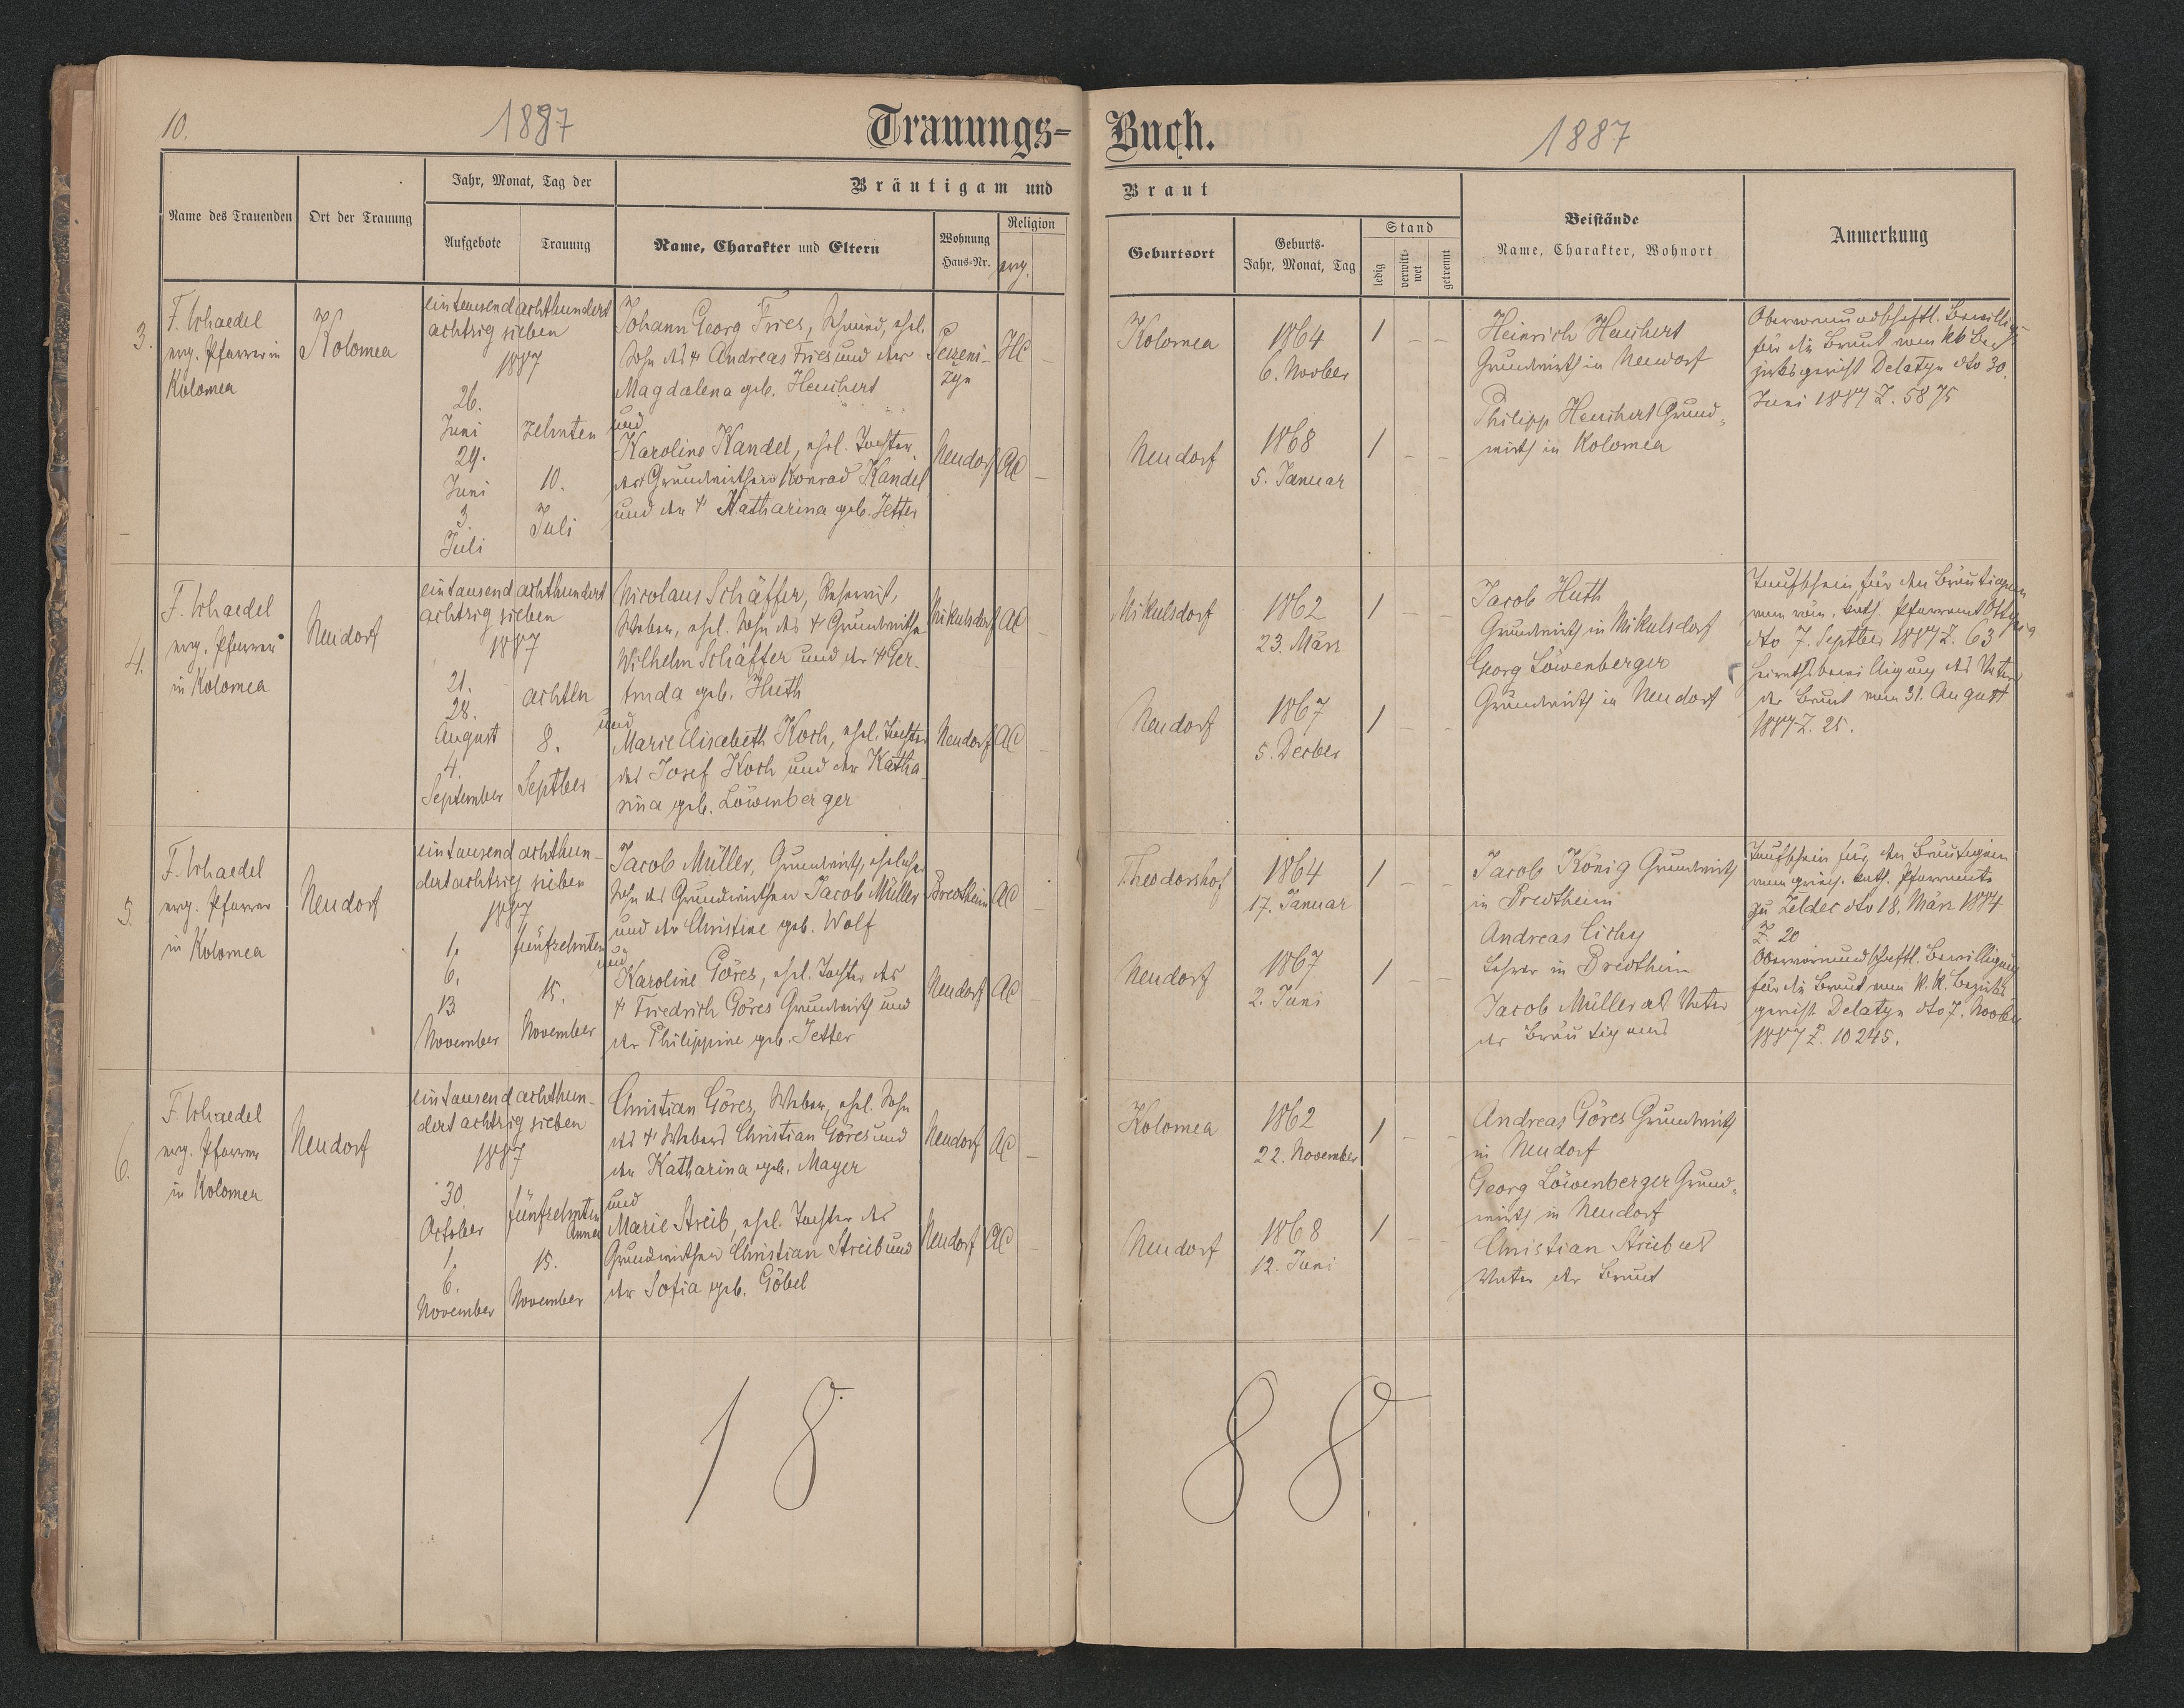 10.
1887
Trauungs-
Buch.
1887
Name des Trauenden
Ort der Trauung
Jahr, Monat, Tag der
Aufgebote
Trauung
Bräutigam und
Name, Charakter und Eltern
Wohnung
Haus-Nr.
Religion
evg.
Braut
Geburtsort
Geburts-
Jahr, Monat, Tag
Stand
ledig
verwitt-
wet
getrennt
Beistände
Name, Charakter, Wohnort
Anmerkung
3.
F. Schaedel
evg. Pfarrer in
Kolomea
Kolomea
eintausend achthundert
achtzig sieben
1887
26.
Juni
29.
Juni
3.
Juli
zehnten
10.
Juli
Johann Georg Fries, Schmied, ehel.
Sohn des † Andreas Fries und der
Magdalena geb. Heuchert
und
Karoline Kandel, ehel. Tochter
des Grundwirthen Konrad Kandel
und der † Katharina geb. Jetter
Peczeni-
zyn
HC
Neudorf
AC
Kolomea
1864
6. Novber
1
Neudorf
1868
5. Januar
1
Heinrich Heuchert
Grundwirth in Neudorf
Philipp Heuchert Grund-
wirth in Kolomea
Obervormundschaftl. Bewilligg
für die Braut vom kk Be-
zirksgericht Delatyn dto 30.
Juni 1887 Z. 5875
4.
F. Schaedel
evg. Pfarrer
in Kolomea
Neudorf
eintausend achthundert
achtzig sieben
1887
21.
28.
August
4.
September
achten
8.
Septber
Nicolaus Schäffer, Reservist,
Weber, ehel. Sohn des † Grundwirths
Wilhelm Schäffer und der † Ger-
truda geb. Huth
und
Marie Elisabeth Koch, ehel. Tochter
des Josef Koch und der Katha-
rina geb. Löwenberger
Mikulsdorf
AC
Neudorf
AC
Mikulsdorf
1862
23. März
1
Neudorf
1867
5. Decber
1
Jacob Huth
Grundwirth in Mikulsdorf
Georg Löwenberger
Grundwirth in Neudorf
Taufschein für den Bräutigam
vom röm. kath. Pfarramt
dto 7. Septber 1887 Z. 63
Heirathsbewilligung des Vaters
der Braut vom 31. August
1887 Z. 25.
5.
F. Schaedel
evg. Pfarrer
in Kolomea
Neudorf
eintausend achthun-
dert achtzig sieben
1887
1.
6.
13.
November
fünfzehnten
15.
November
Jacob Müller, Grundwirth, ehelicher
Sohn des Grundwirthen Jacob Müller
und der Christine geb. Wolf
und
Karoline Göres, ehel. Tochter des
† Friedrich Göres Grundwirth und
der Philippine geb. Jetter
Bredtheim
AC
Neudorf
AC
Theodorshof
1864
17. Januar
1
Neudorf
1867
2. Juni
1
Jacob König Grundwirth
in Bredtheim
Andreas Cichy
Lehrer in Bredtheim
Jacob Müller als Vater
des Bräutigams
Taufschein für den Bräutigam
vom griech. kath. Pfarramte
zu Zeldec dto 18. März 1884
Z. 20
Obervormundschaftl. Bewilligung
für die Braut vom k. k. Bezirks
gericht Delatyn dto 7. Novber
1887 Z. 10245.
6.
F. Schaedel
evg. Pfarrer
in Kolomea
Neudorf
eintausend achthun-
dert achtzig sieben
1887
30.
October
1.
6.
November
fünfzehnten
15.
November
Christian Göres, Weber, ehel. Sohn
des † Webers Christian Göres und
der Katharina geb. Mayer
und
Anna
Marie Streib, ehel. Tochter des
Grundwirthen Christian Streib und
der Sofia geb. Göbel
Neudorf
AC
Neudorf
AC
Kolomea
1862
22. November
1
Neudorf
1868
12. Juni
1
Andreas Göres Grundwirth
in Neudorf
Georg Löwenberger Grund-
wirth in Neudorf
Christian Streib als
Vater der Braut
1 8
8 8